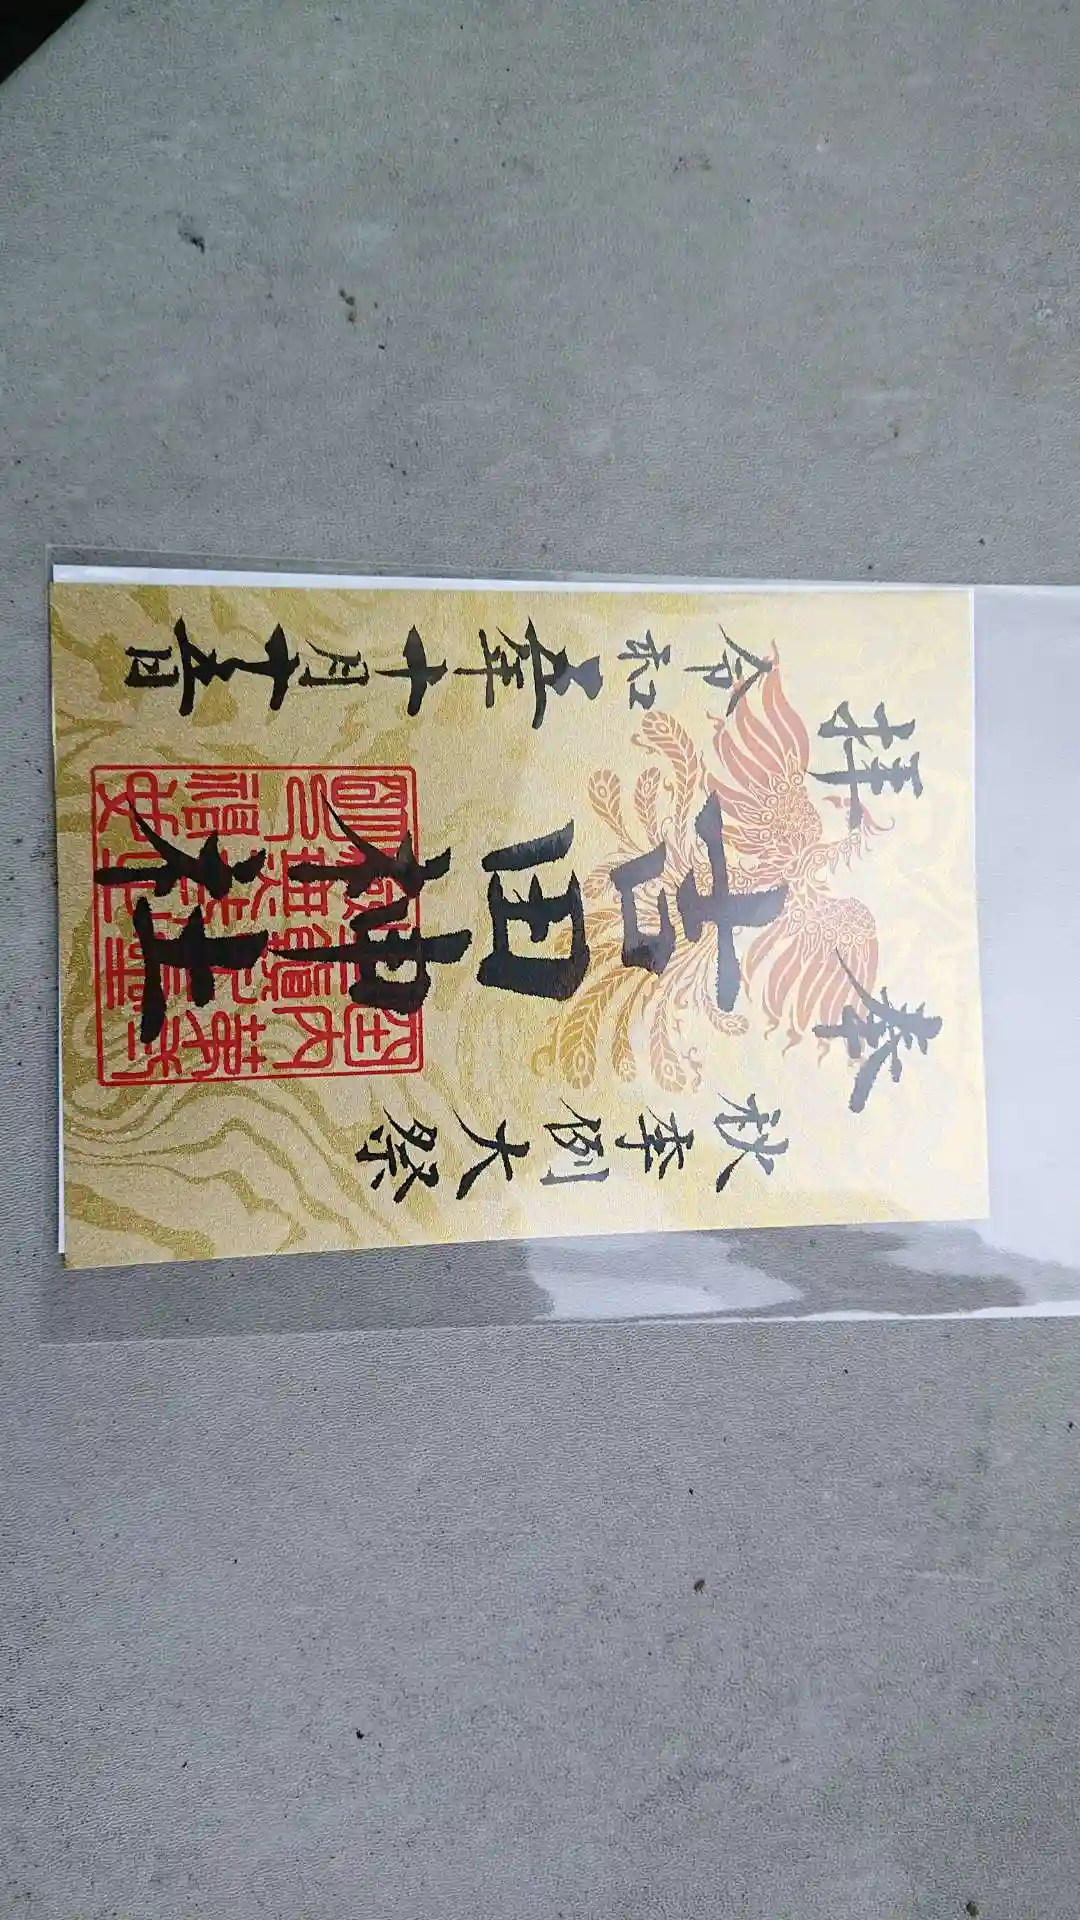 奉
拝
秋季例大祭
吉田神社
令和五年十月十五日